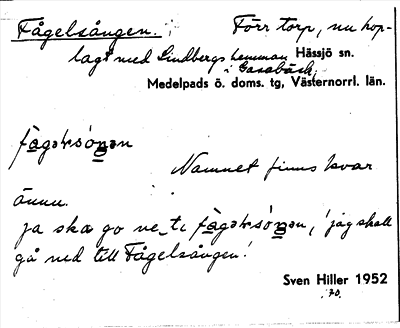 Fågelsången. Förr torp, nu hop-
lagt med Lindbergs hemman Hässjö sn.
i Gasabäck.
Medelpads ö. doms. tg, Västernorrl. län.
Namnet finns kvar
ännu.
ja ska go ne, ti fågəksóŋən, 'jag skall
gå ned till Fågelsången.'
Sven Hiller 1952